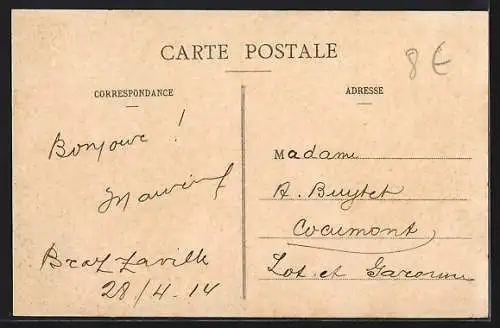 CARTE POSTALE
8€
CORRESPONDANCE
ADRESSE
Bonjour !
Madame
A. Buytet
Cocumont
Lot et Garonne
Brazzaville
28/4.14